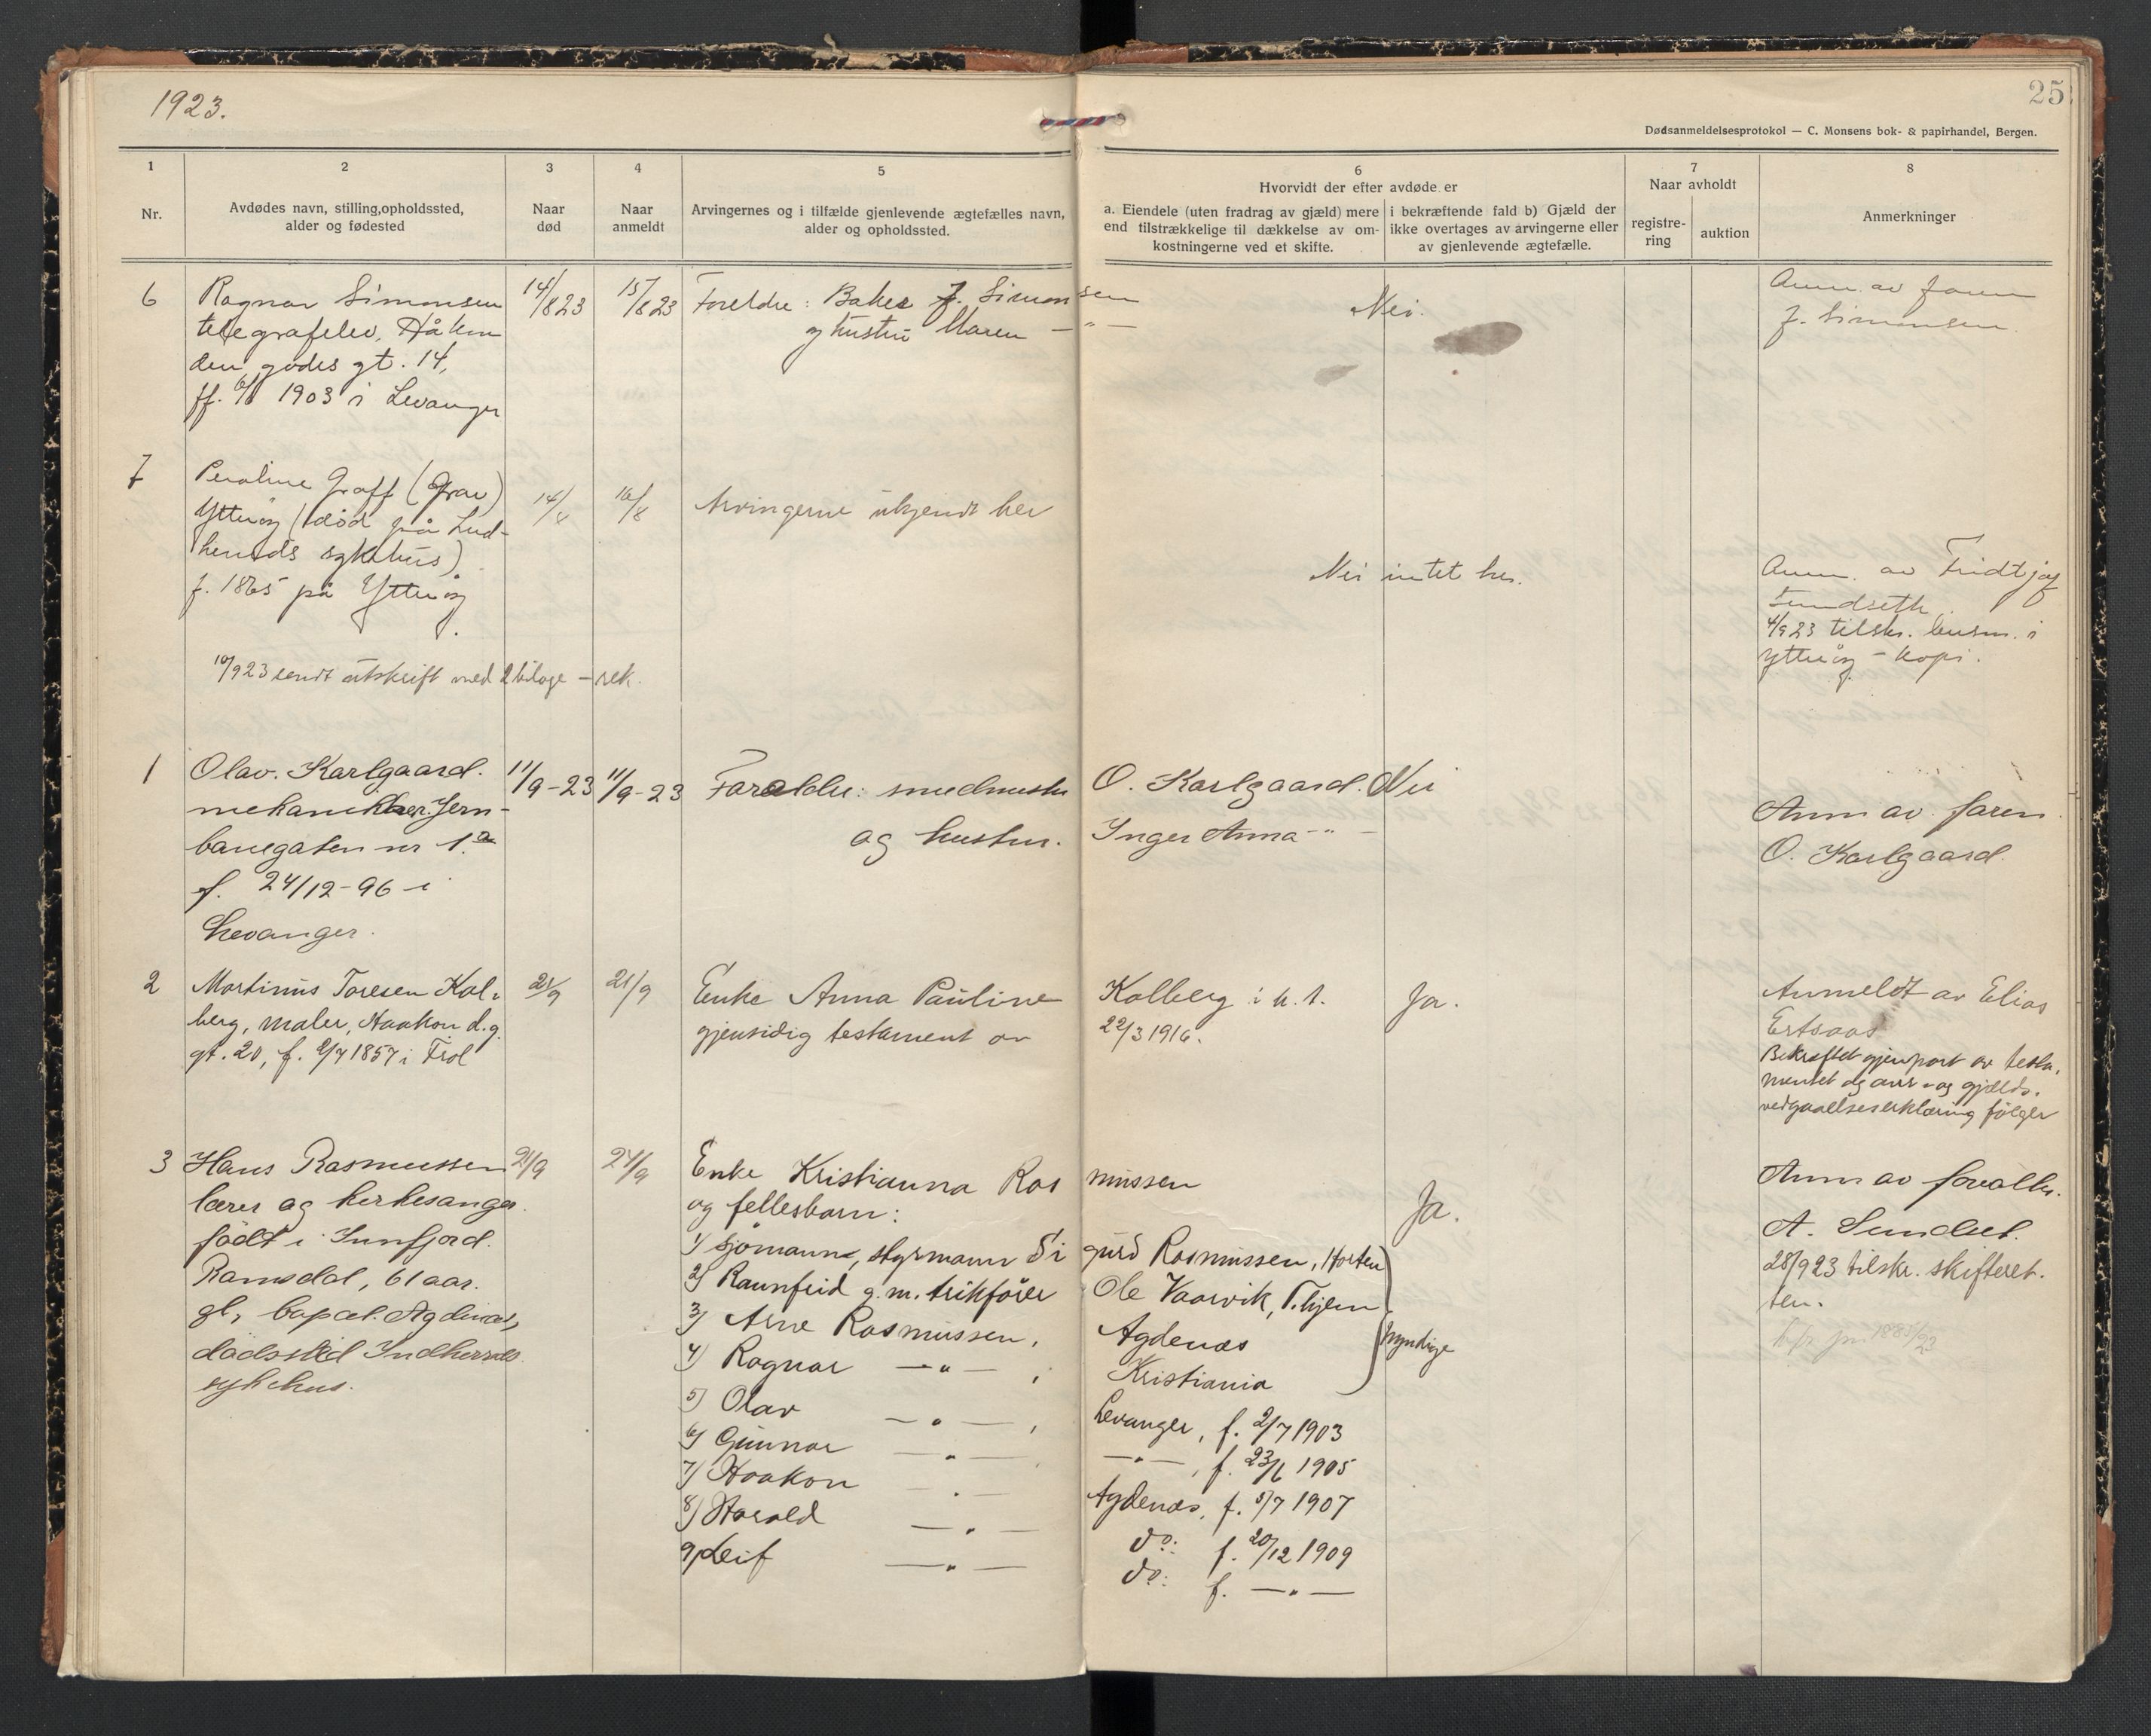 1923.
25
Dødsanmeldelsesprotokol — C. Monsens bok- & papirhandel, Bergen.
1
Nr.
2
Avdødes navn, stilling, opholdssted,
alder og fødested
3
Naar
død
4
Naar
anmeldt
5
Arvingernes og i tilfælde gjenlevende ægtefælles navn,
alder og opholdssted.
6
Hvorvidt der efter avdøde er
a. Eiendele (uten fradrag av gjæld) mere
end tilstrækkelige til dækkelse av om-
kostningerne ved et skifte.
i bekræftende fald b) Gjæld der
ikke overtages av arvingerne eller
av gjenlevende ægtefælle.
7
Naar avholdt
registre-
ring
auktion
8
Anmerkninger
6
Ragnar Simonsen
telegrafelev, Håkon
den godes gt. 14,
1903 i Levanger
14/8 23
15/8 23
Foreldre: Baker J. Simonsen
og hustru Maren —"—
Nei.
Anm. av faren
J. Simonsen.
7
Peraline Graff (Grav)
Ytterøy (død på Ind-
herreds sykehus)
f. 1865 på Ytterøy
14/8
16/8
Arvingerne ukjendt her
Nei intet her.
Anm. av Fridtjof
4/9 23 tilskr. lensm. i
Ytterøy - kopi.
10/9 23 sendt utskrift med 2 bilage - rek.
1
Olav. Karlgaard.
mekaniker. Jern-
banegaten nr 1.a
f. 24/12-96 i
Levanger.
11/9-23
11/9-23
Foraldre: smedmester O. Karlgaard.
og hustru. Inger Anna -"-
Nei
Anm av faren.
O. Karlgaard.
2
Martinus Toresen Kol-
berg, maler, Haakon d.g.
gt. 20, f. 2/7 1857 i Frol
21/9
21/9
Enke Anna Pauline Kolberg i h. t.
gjensidig testament av 22/3 1916.
Ja.
Anmeldt av Elias
Ertsaas
Bekræftet gjenpart av testa-
mentet og arvs- og gjælds-
vedgaaelseserklæring følger
3
Hans Rasmussen
lærer og kirkesanger.
født i Sunfjord.
Ramsdal, 61 aar.
gl, bopæl. Agdenæs,
dødssted Indherreds
sykehus.
21/9
24/9
Enke Kristianna Rasmussen
og fellesbarn:
Ja.
1) sjømann, styrmann Sigurd Rasmussen, Horten
2) Raunfrid g. m. trikfører Ole Vaarvik, T.hjem
3) Arne Rasmussen, Agdenæs
4) Ragnar —"—, Kristiania
myndige
5) Olav —"—, Levanger, f. 2/7 1903
6) Gunnar —"— —"—, f. 23/6 1905
7) Haakon —"— Agdenæs, f. 5/7 1907
8) Harald —"— do: f. 20/12 1909
9) Leif —"— do: f. —"—
Anm av forvalter.
A. Sundset.
28/9 23 tilskr. skifteret-
ten.
1885/23